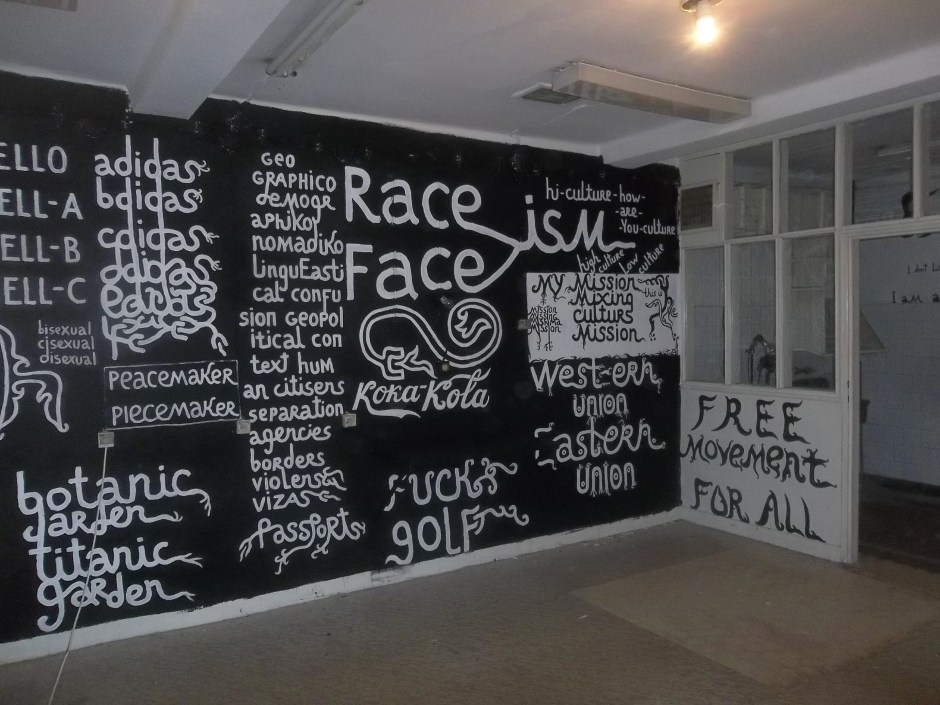 ELLO
ELL-A
ELL-B
ELL-C
bisexual
cisexual
disexual
adidas
bdidas
cdidas
ddidas
edidas
PEACEMAKER
PIECEMAKER
botanic
garden
titanic
garden
GEO
GRAPHICO
demogr
aphikoj
nomadiko
LinguEasti
cal confu
sion GEOPOL
itical con
text hum
an citisens
separation
agencies
borders
violens
VIZAS
Passports
Race
Face
ism
KOKA-Kola
FUCK
golf
hi-culture-how-
-are-
-You-culture
high culture
low culture
MY Mission
Mixing
culturs
Mission
this is
Western
UNION
Eastern
UNION
FREE
MOVEMENT
FOR ALL
I am a